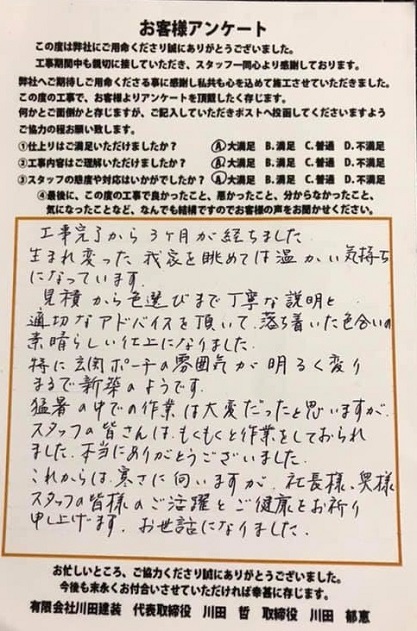 お客様アンケート
この度は弊社にご用命くださり誠にありがとうございました。
工事期間中も親切に接していただき、スタッフ一同心より感謝しております。
弊社へご期待しご用命くださる事に感謝し私共も心を込めて施工させていただきました。
この度の工事で、お客様よりアンケートを頂戴したく存じます。
何かとご面倒かと存じますが、ご記入していただきポストへ投函してくださいますよう
ご協力の程お願い致します。
①仕上りはご満足いただけましたか？ A.大満足 B.満足 C.普通 D.不満足
②工事内容はご理解いただけましたか？ A.大満足 B.満足 C.普通 D.不満足
③スタッフの態度や対応はいかがでしたか？ A.大満足 B.満足 C.普通 D.不満足
④最後に、この度の工事で良かったこと、悪かったこと、分からなかったこと、
気になったことなど、なんでも結構ですのでお客様の声をお聞かせください。
工事完了から3ヶ月が経ちました
生まれ変った我家を眺めては温かい気持ち
になっています。
見積から色選びまで丁寧な説明と
適切なアドバイスを頂いて、落ち着いた色合いの
素晴らしい仕上になりました。
特に玄関ポーチの雰囲気が明るく変り
まるで新築のようです。
猛暑の中での作業は大変だったと思いますが、
スタッフの皆さんは、もくもくと作業をしておられ
ました。本当にありがとうございました。
これからは、寒さに向いますが、社長様、奥様
スタッフの皆様のご活躍とご健康をお祈り
申し上げます。お世話になりました。
お忙しいところ、ご協力くださり誠にありがとうございました。
今後も末永くお付合いさせていただければ幸甚に存じます。
有限会社川田建装 代表取締役 川田 哲 取締役 川田 郁恵